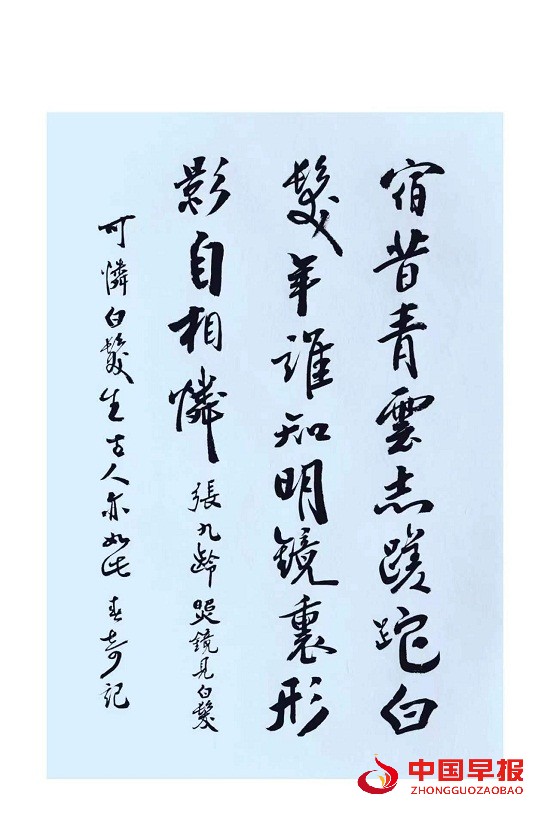 宿昔青雲志蹉跎白
髮年誰知明鏡裏形
影自相憐
張九齡 照鏡見白髮
可憐白髮生古人亦如此 春奇記
中国早报
ZHONGGUOZAOBAO